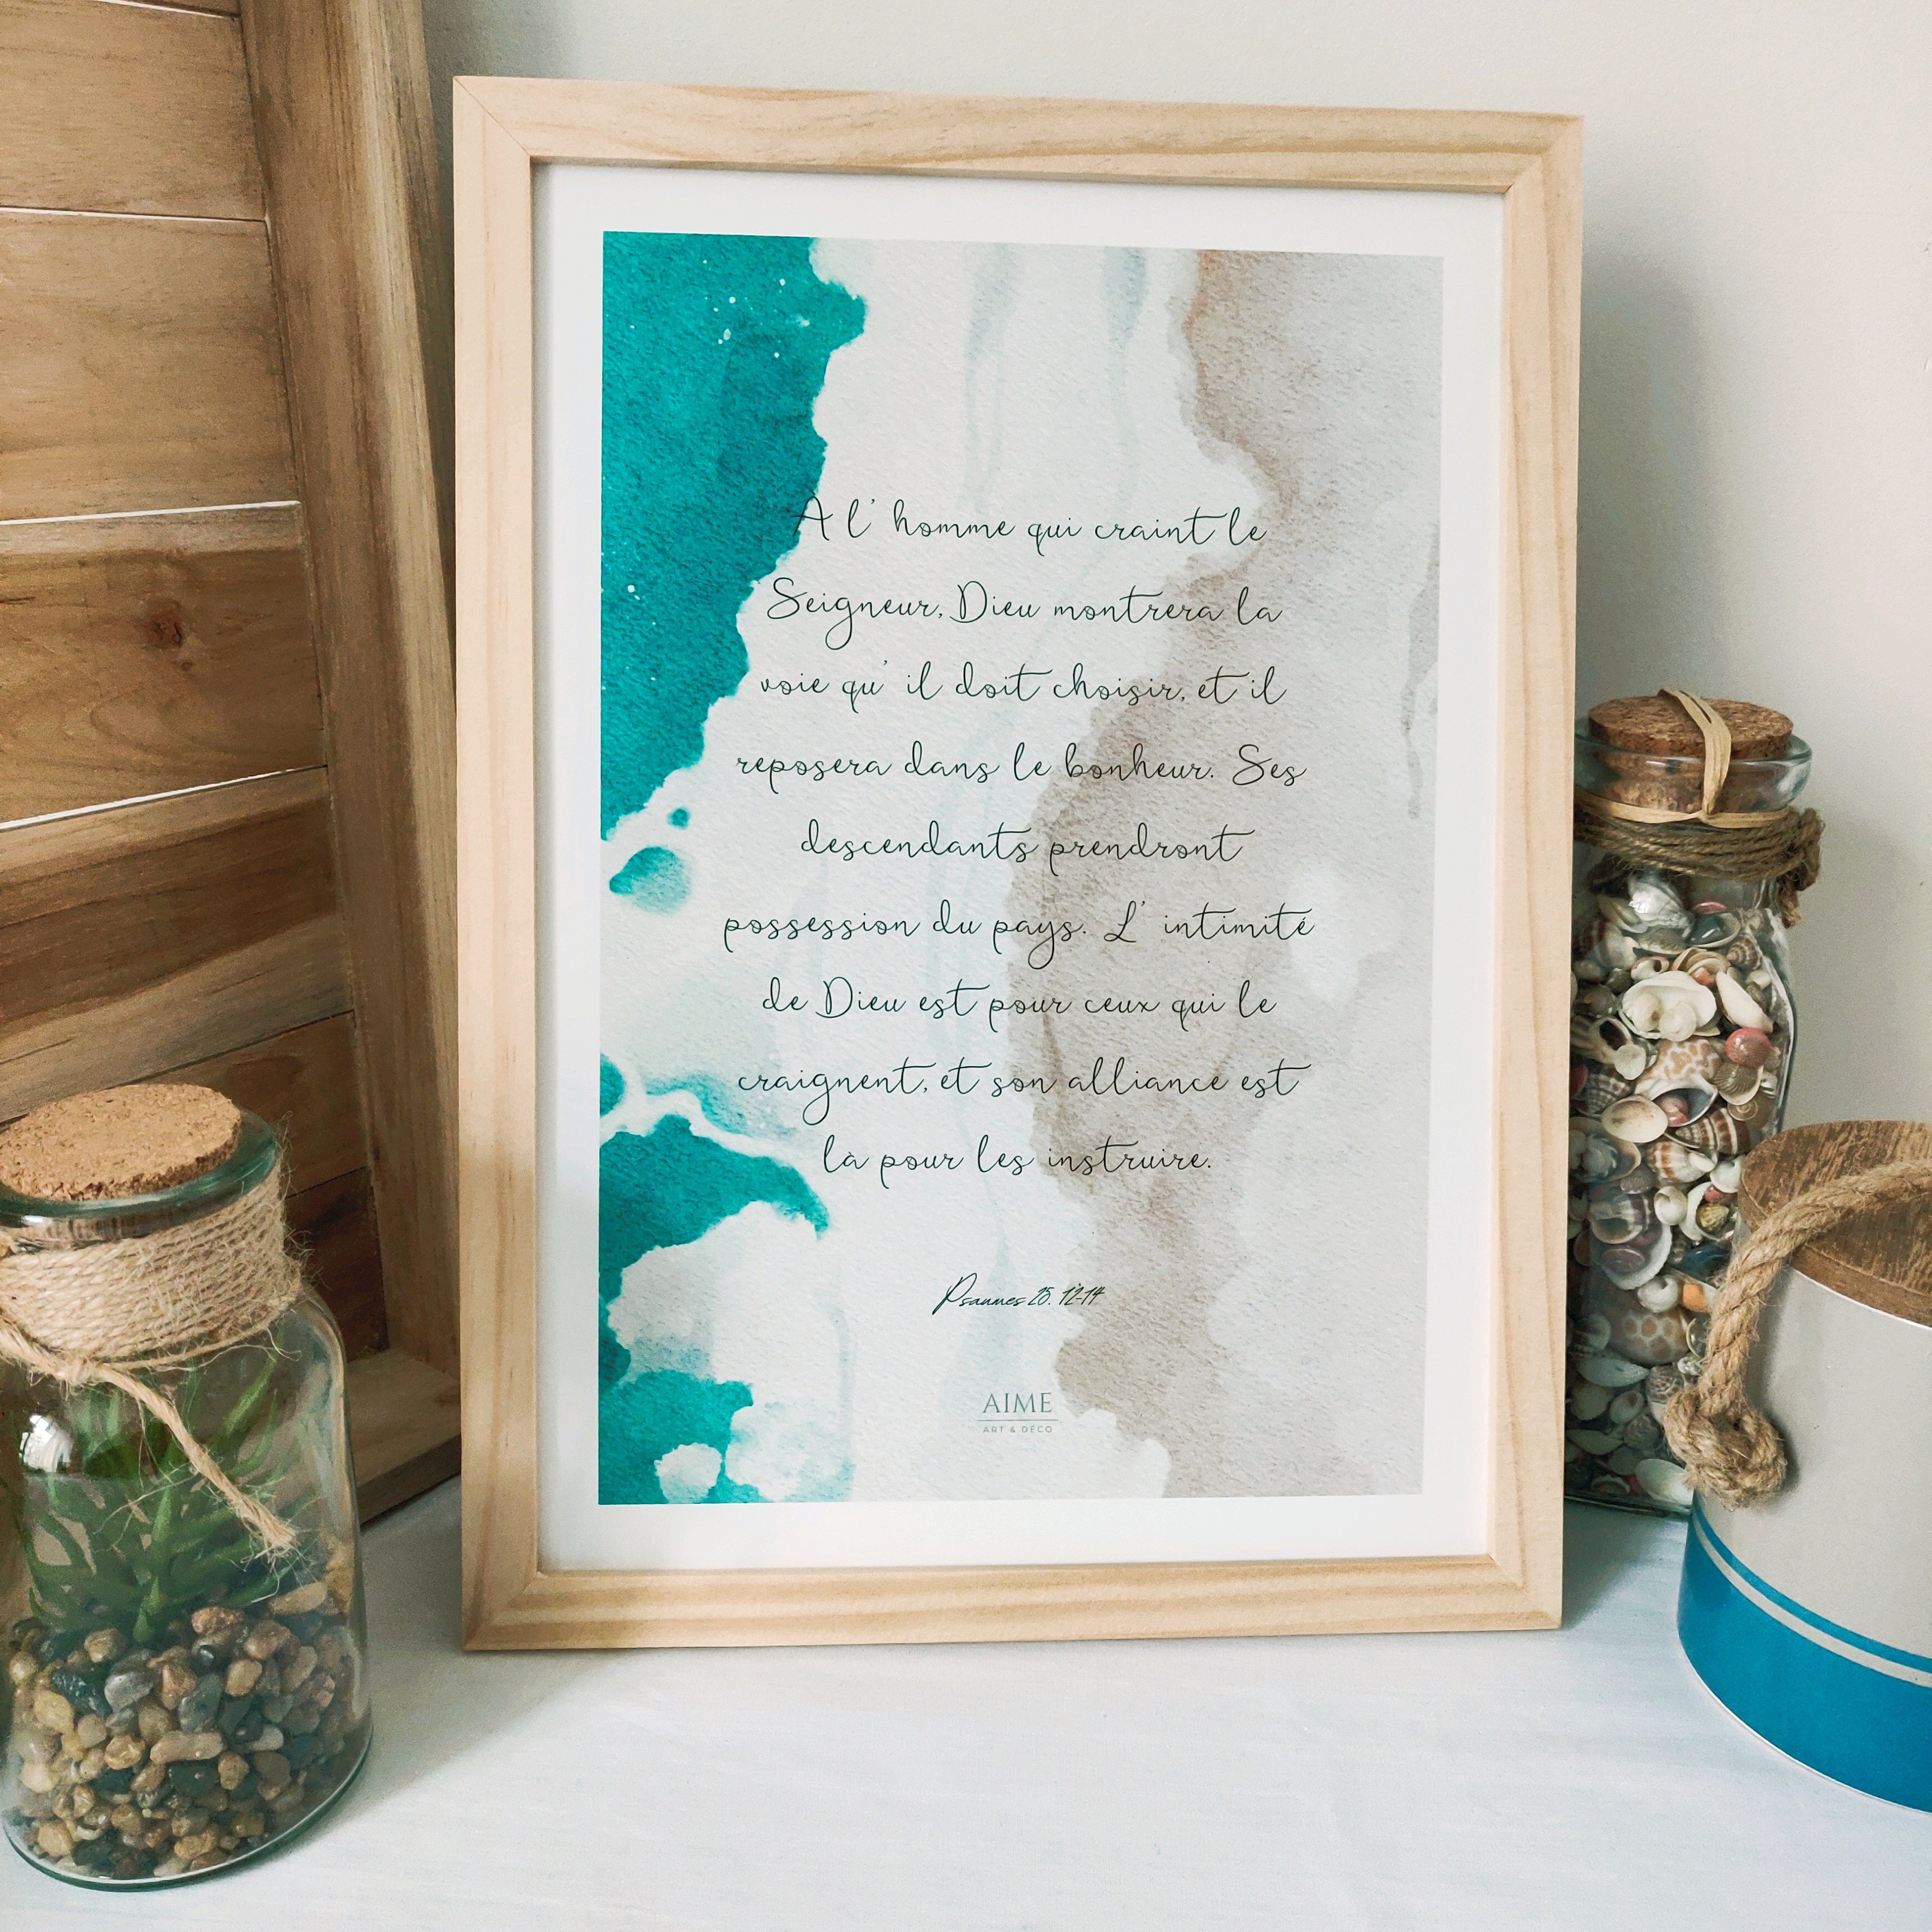 A l' homme qui craint le
Seigneur, Dieu montrera la
voie qu' il doit choisir, et il
reposera dans le bonheur. Ses
descendants prendront
possession du pays. L' intimité
de Dieu est pour ceux qui le
craignent, et son alliance est
là pour les instruire.
Psaumes 25. 12-14
AIME
ART & DÉCO